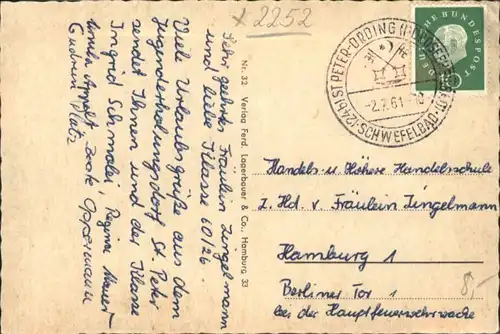 x 2252
Sehr geehrtes Fräulein Zingelmann
und liebe Klasse 60/26.
Viele Urlaubsgrüße aus dem
Jugenderholungsdorf St. Peter
sendet Ihnen und der Klasse
Ingrid Schmalei, Regina
Gudrun Platz
Beate Oppermann
Nr. 32 Verlag Ferd. Lagerbauer & Co., Hamburg 33
(24b) ST. PETER-ORDING
SCHWEFELBAD
-2.7.61
DEUTSCHE BUNDESPOST
10
Handels- u. Höhere Handelsschule
z. Hd. v. Fräulein Zingelmann
Hamburg 1
Berliner Tor 1
bei der Hauptfeuerwehrwache
8,-